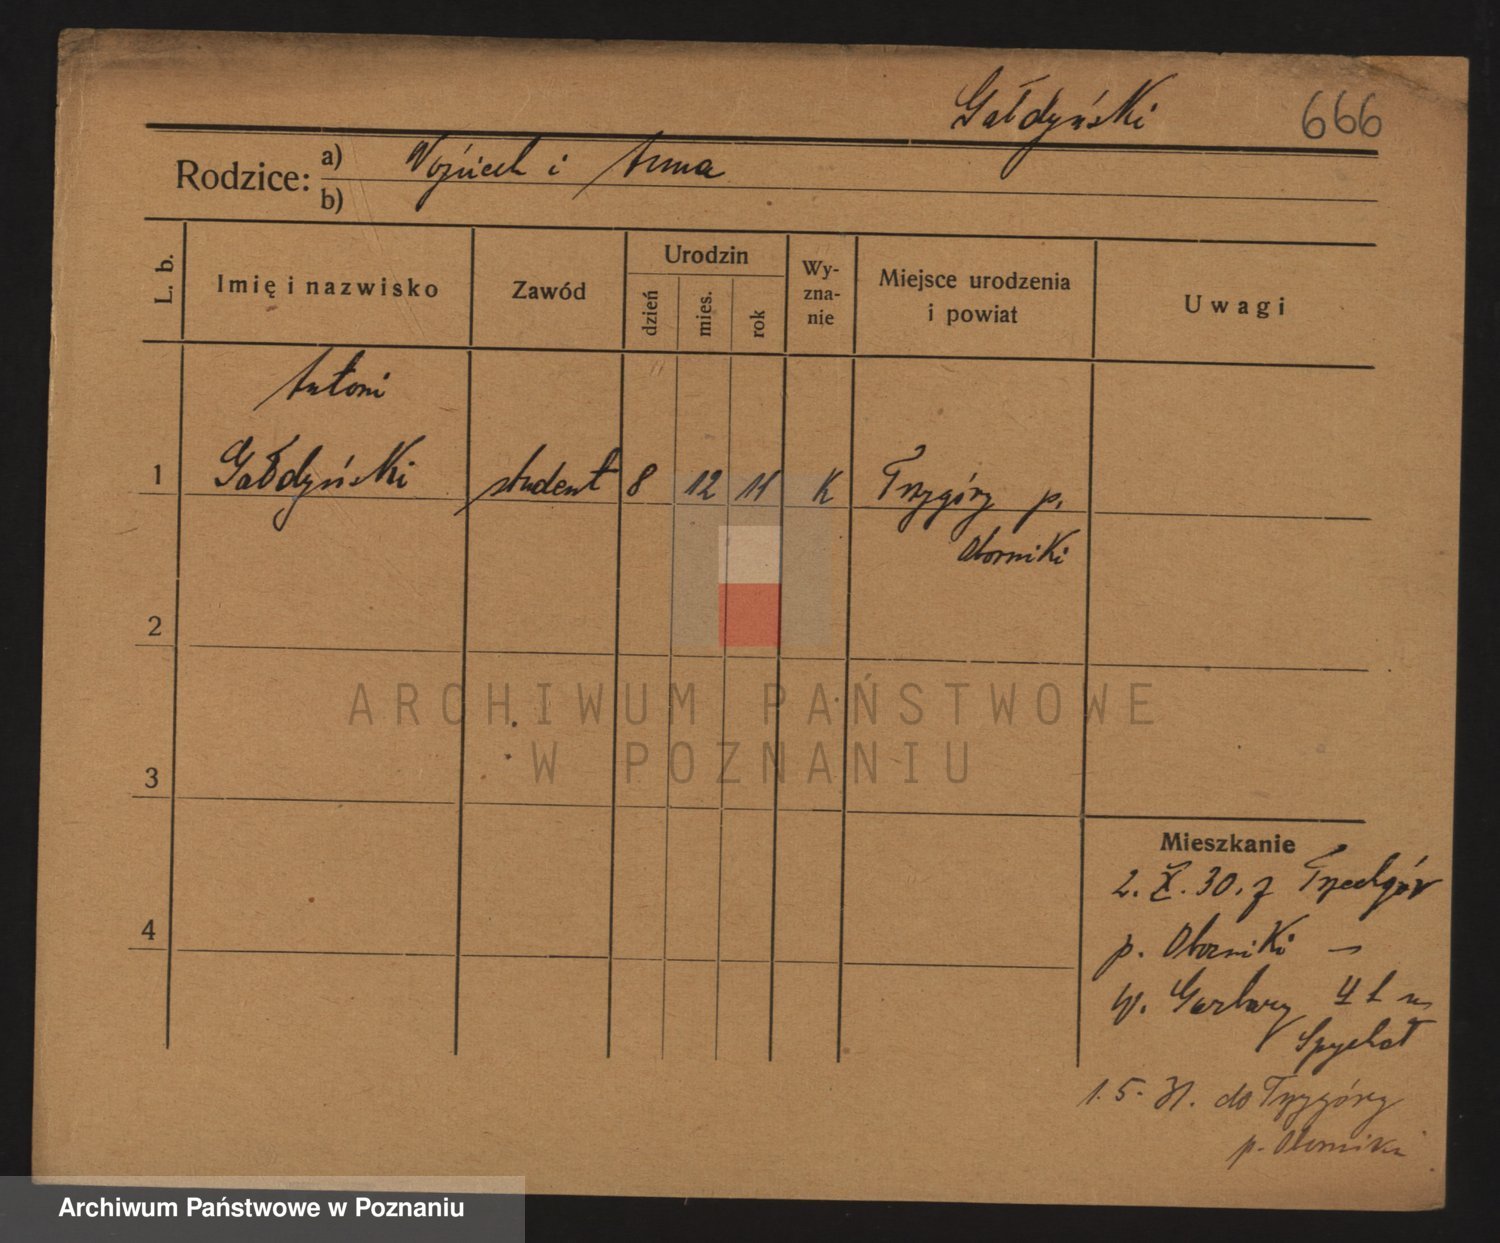 Gałdyński 666
Rodzice: a) Wojciech i Anna
b)
L. b. Imię i nazwisko Zawód Urodzin dzień mies. rok Wy-zna-nie Miejsce urodzenia i powiat Uwagi
Antoni
1 Gałdyński student 8 12 11 K Trzygóry p.
Oborniki
2
ARCHIWUM PAŃSTWOWE
W POZNANIU
3
4
Mieszkanie
2. X. 30. z Trzechgór
p. Oborniki –
W. Garbary 41 m
Spychał
1. 5. 31. do Trzygóry
p. Oborniki
Archiwum Państwowe w Poznaniu